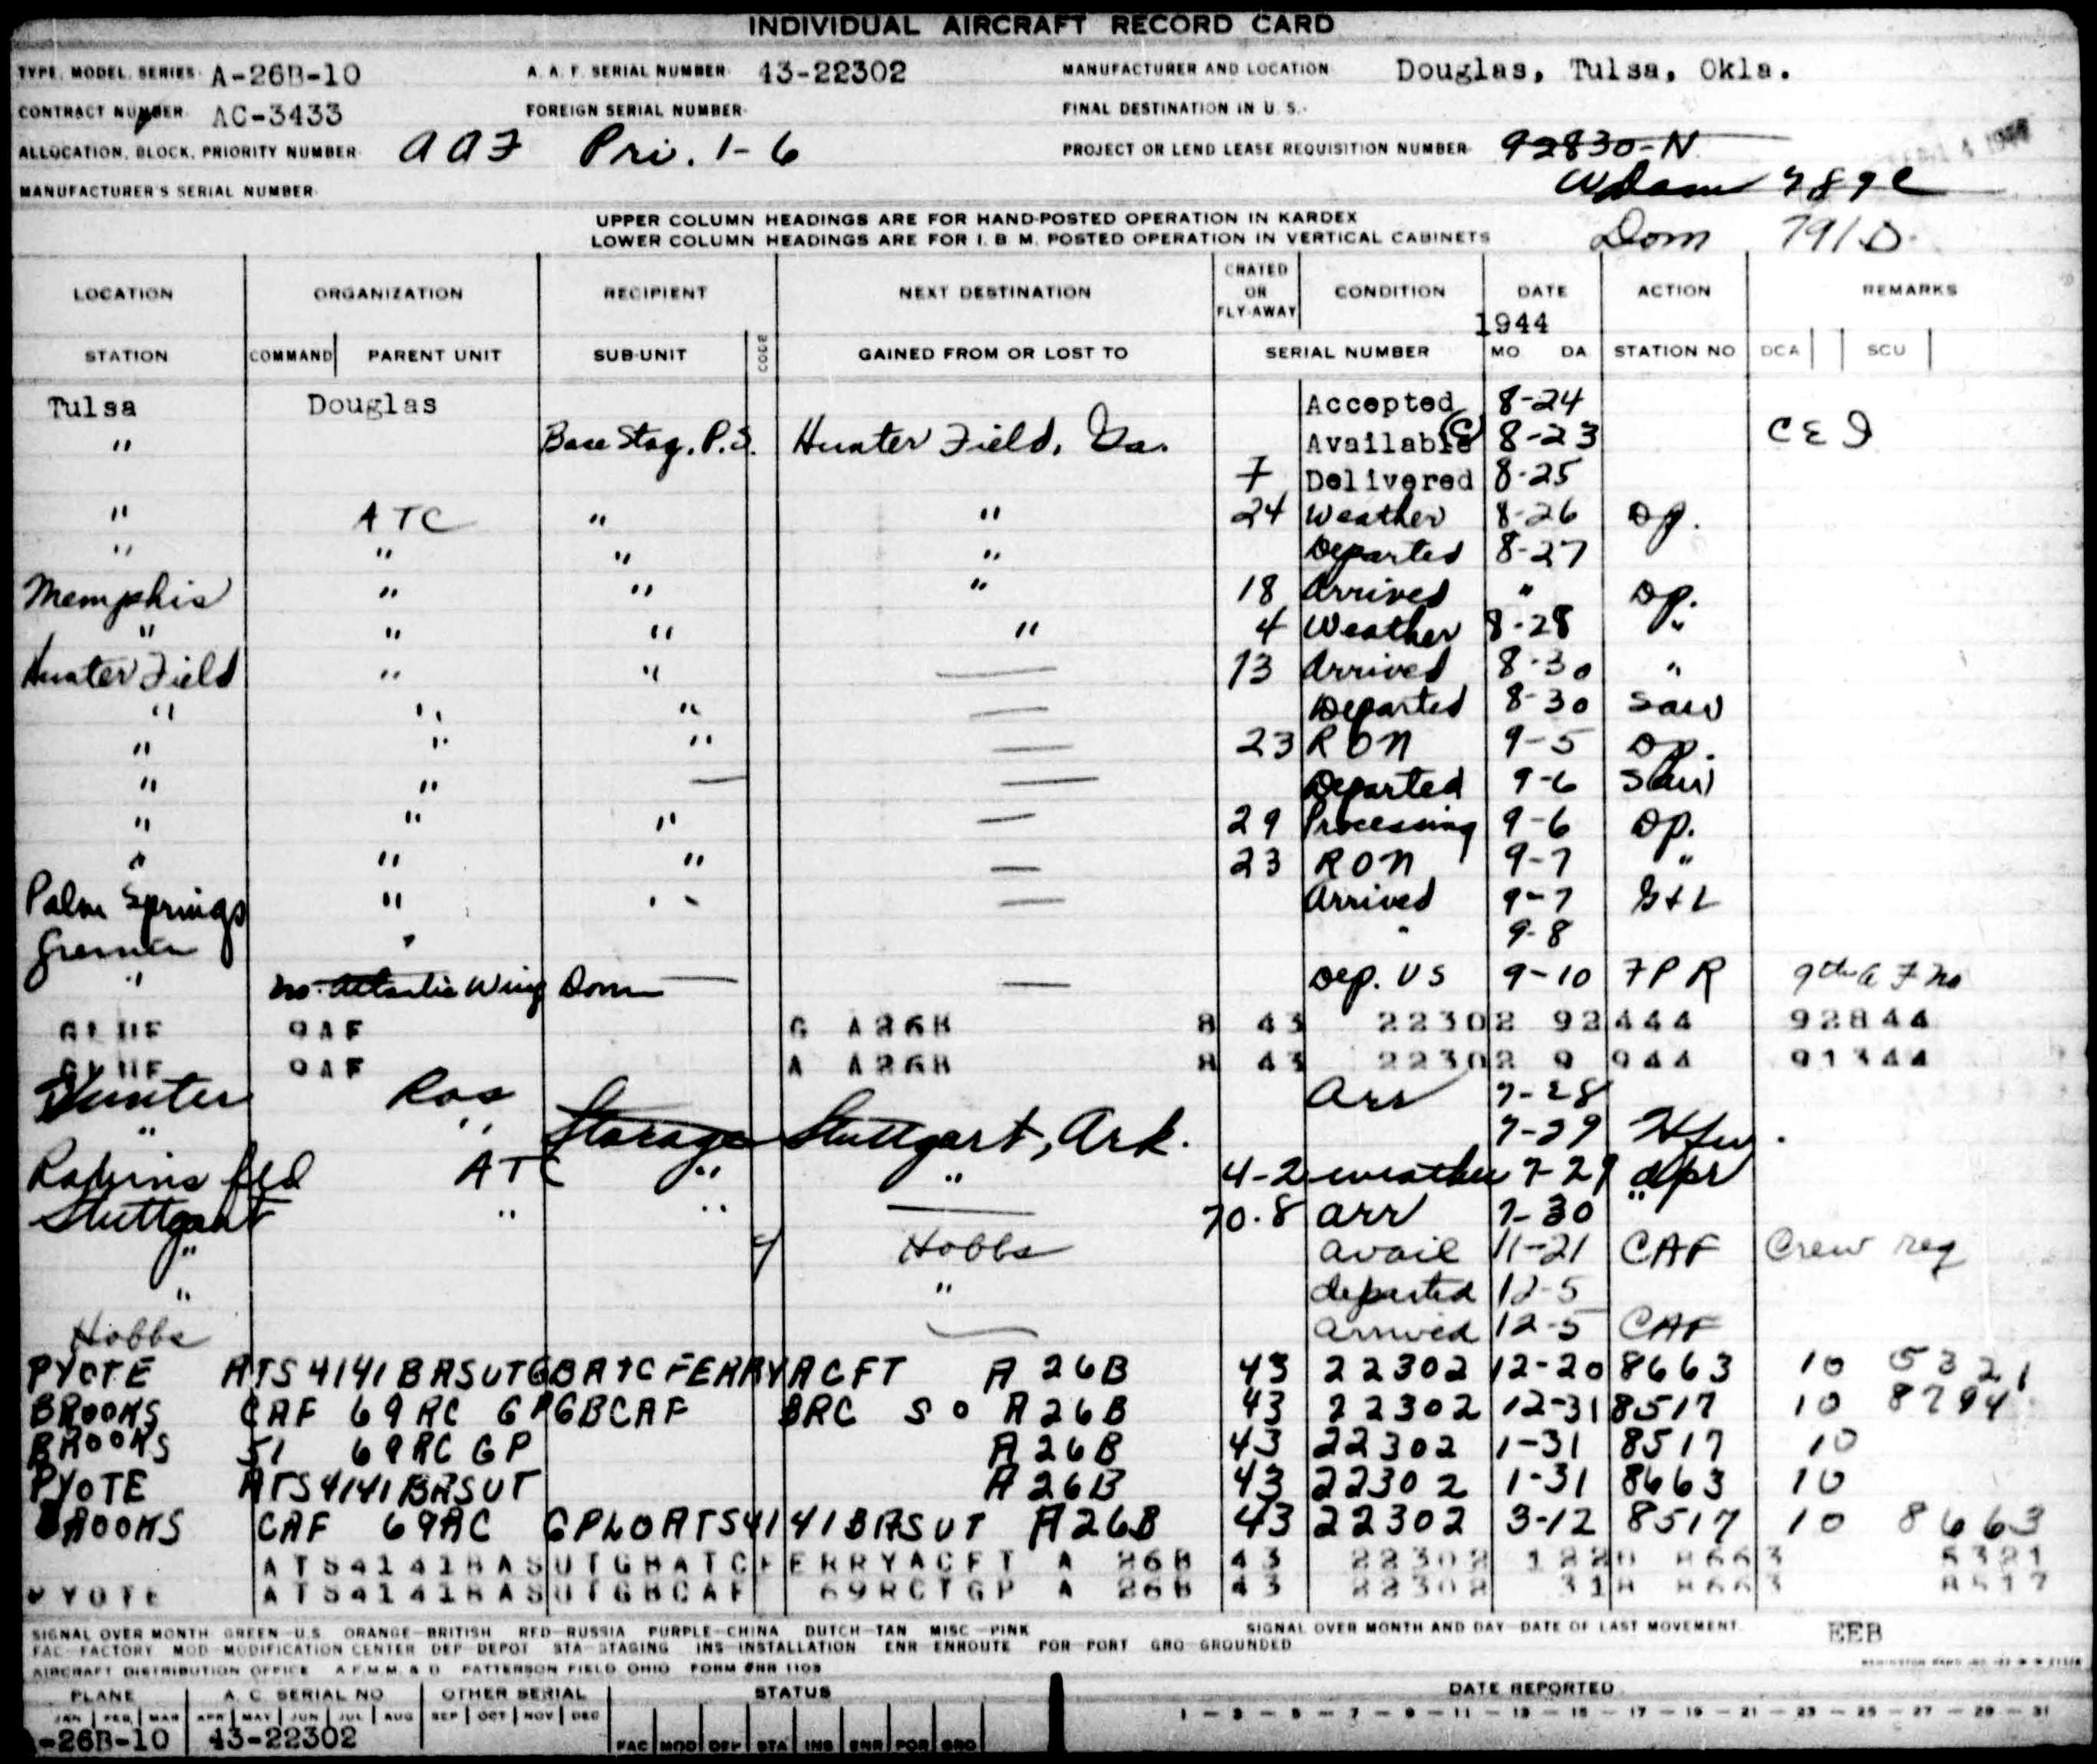 INDIVIDUAL AIRCRAFT RECORD CARD
TYPE, MODEL, SERIES A-26B-10 A. A. F. SERIAL NUMBER 43-22302 MANUFACTURER AND LOCATION Douglas, Tulsa, Okla.
CONTRACT NUMBER AC-3433 FOREIGN SERIAL NUMBER FINAL DESTINATION IN U. S.
ALLOCATION, BLOCK, PRIORITY NUMBER AAF Pri. 1-6 PROJECT OR LEND LEASE REQUISITION NUMBER 92830-N
MANUFACTURER'S SERIAL NUMBER
UPPER COLUMN HEADINGS ARE FOR HAND-POSTED OPERATION IN KARDEX
LOWER COLUMN HEADINGS ARE FOR I. B. M. POSTED OPERATION IN VERTICAL CABINETS Dom 791D
LOCATION ORGANIZATION RECIPIENT NEXT DESTINATION CRATED OR FLY-AWAY CONDITION DATE ACTION REMARKS
1944
STATION COMMAND PARENT UNIT SUB-UNIT CODE GAINED FROM OR LOST TO SERIAL NUMBER MO DA STATION NO DCA SCU
Tulsa Douglas Accepted 8-24
" Base Stag. P.S. Hunter Field, Ga. Available (C) 8-23 C E I
7 Delivered 8-25
" ATC " " 24 Weather 8-26 Op.
" " " " Departed 8-27
Memphis " " " 18 Arrived " Op.
" " " " 4 Weather 8-28 "
Hunter Field " " — 13 Arrived 8-30 "
" " " — Departed 8-30 Saw
" " " — 23 RON 9-5 Op.
" " — — Departed 9-6 Saw
" " " — 29 Processing 9-6 Op.
" " " — 23 RON 9-7 "
Palm Springs " " — Arrived 9-7 G&L
Grenier " " 9-8
" No. Atlantic Wing Dom — — Dep. US 9-10 FPR 9th A F No
GLUE 9AF G A26B 8 43 22302 92444 92844
GLUE 9AF A A26B 8 43 22302 9 944 91344
Hunter Ros Arr 7-28
" " Storage Stuttgart, Ark. 7-29
Robins fld ATC " " 4-2 weather 7-29 dpr
Stuttgart " " — 70.8 arr 7-30 "
" Hobbs avail 11-21 CAF Crew req
" " departed 12-5
Hobbs — arrived 12-5 CAF
PYOTE ATS 4141 BASUTGBATCFERRYACFT A 26B 43 22302 12-20 8663 10 5321
BROOKS CAF 69 RC GPGBCAF BRC SO A26B 43 22302 12-31 8517 10 8294
BROOKS 51 69RC GP A26B 43 22302 1-31 8517 10
PYOTE ATS4141BASUT A26B 43 22302 1-31 8663 10
BROOKS CAF 69RC GPLOATS4141BASUT A26B 43 22302 3-12 8517 10 8663
ATS4141BASUTGBATCFERRYACFT A 26B 43 22302 1220 8663 5321
PYOTE ATS4141BASUTGBCAF 69RCTGP A 26B 43 22302 318 8663 8517
SIGNAL OVER MONTH GREEN—U.S. ORANGE—BRITISH RED—RUSSIA PURPLE—CHINA DUTCH—TAN MISC—PINK SIGNAL OVER MONTH AND DAY—DATE OF LAST MOVEMENT EEB
FAC—FACTORY MOD—MODIFICATION CENTER DEP—DEPOT STA—STAGING INS—INSTALLATION ENR—ENROUTE POR—PORT GRO—GROUNDED
AIRCRAFT DISTRIBUTION OFFICE A.F.M.M. & D. PATTERSON FIELD OHIO FORM #NR 1103
PLANE A. C. SERIAL NO OTHER SERIAL STATUS DATE REPORTED
JAN FEB MAR APR MAY JUN JUL AUG SEP OCT NOV DEC 1 — 3 — 5 — 7 — 9 — 11 — 13 — 15 — 17 — 19 — 21 — 23 — 25 — 27 — 29 — 31
-26B-10 43-22302 FAC MOD DEP STA INS ENR POR GRO